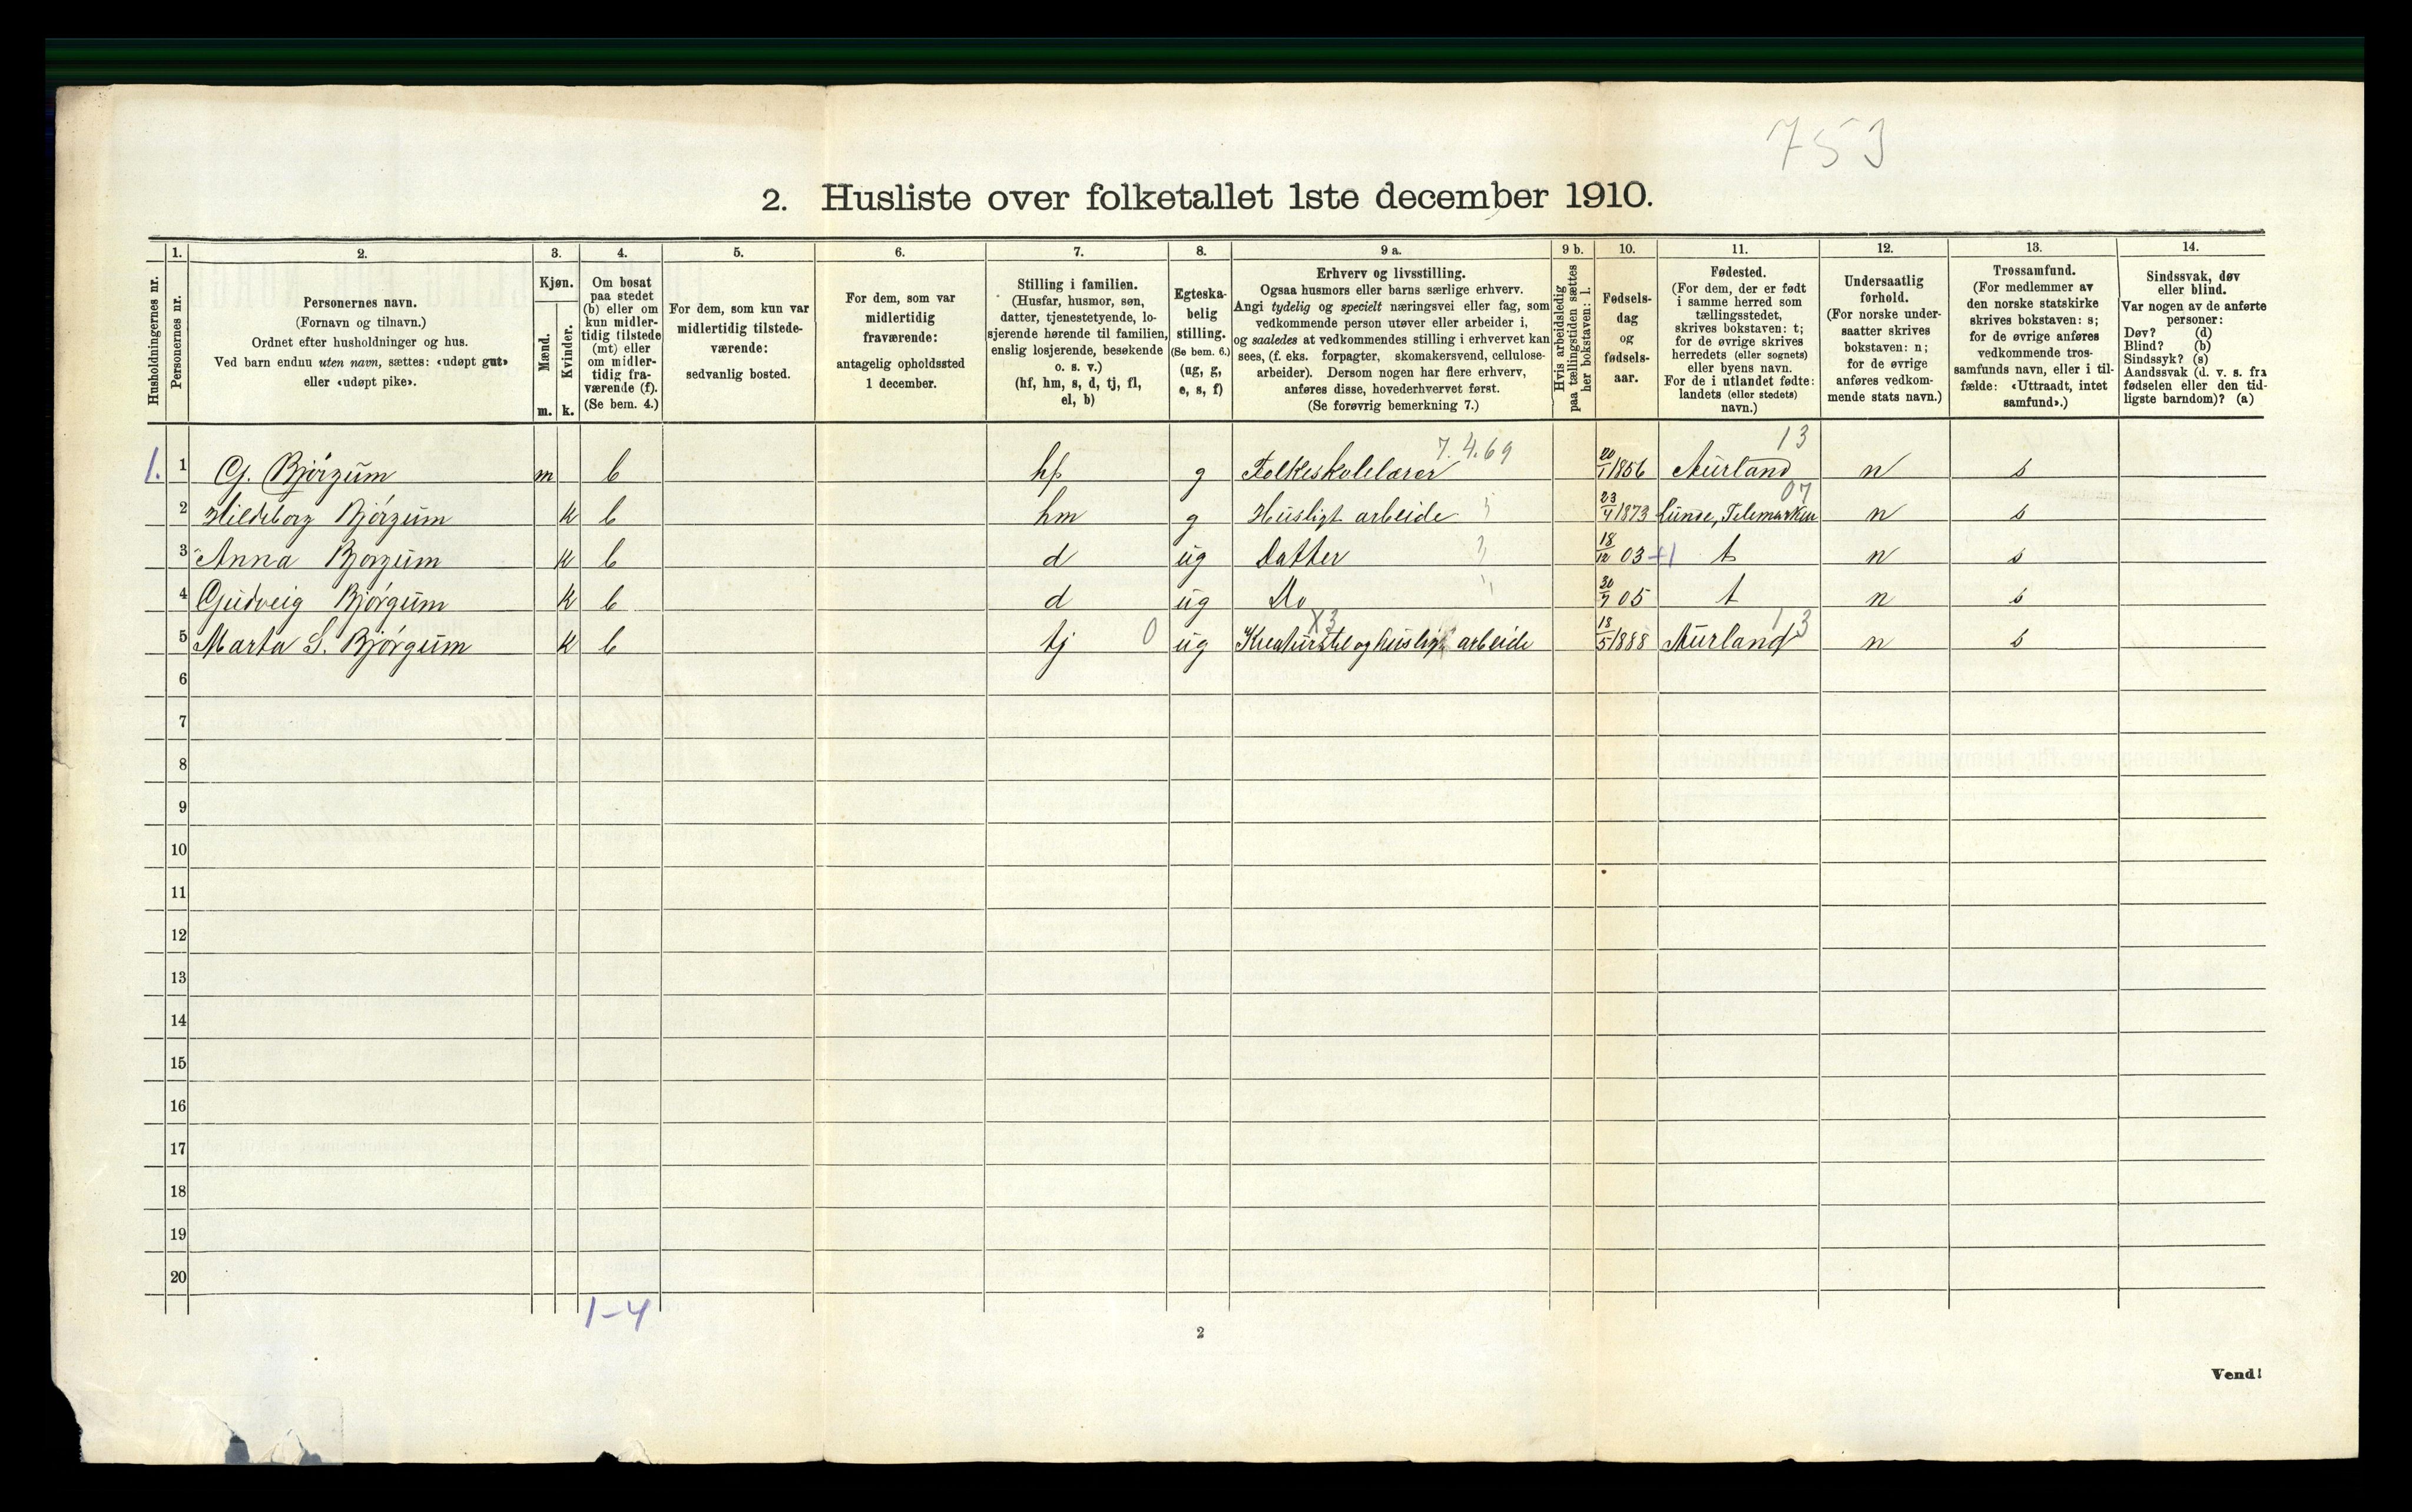 753
2. Husliste over folketallet 1ste december 1910.
Husholdningernes nr.
1.
Personernes nr.
2.
Personernes navn.
(Fornavn og tilnavn.)
Ordnet efter husholdninger og hus.
Ved barn endnu uten navn, sættes: «udøpt gut»
eller «udøpt pike».
3.
Kjøn.
Mænd.
Kvinder.
m. k.
4.
Om bosat
paa stedet
(b) eller om
kun midler-
tidig tilstede
(mt) eller
om midler-
tidig fra-
værende (f).
(Se bem. 4.)
5.
For dem, som kun var
midlertidig tilstede-
værende:
sedvanlig bosted.
6.
For dem, som var
midlertidig
fraværende:
antagelig opholdssted
1 december.
7.
Stilling i familien.
(Husfar, husmor, søn,
datter, tjenestetyende, lo-
sjerende hørende til familien,
enslig losjerende, besøkende
o. s. v.)
(hf, hm, s, d, tj, fl,
el, b)
8.
Egteska-
belig
stilling.
(Se bem. 6.)
(ug, g,
e, s, f)
9 a.
Erhverv og livsstilling.
Ogsaa husmors eller barns særlige erhverv.
Angi tydelig og specielt næringsvei eller fag, som
vedkommende person utøver eller arbeider i,
og saaledes at vedkommendes stilling i erhvervet kan
sees, (f. eks. forpagter, skomakersvend, cellulose-
arbeider). Dersom nogen har flere erhverv,
anføres disse, hovederhvervet først.
(Se forøvrig bemerkning 7.)
9 b.
Hvis arbeidsledig
paa tællingstiden sættes
her bokstaven: l.
10.
Fødsels-
dag
og
fødsels-
aar.
11.
Fødested.
(For dem, der er født
i samme herred som
tællingsstedet,
skrives bokstaven: t;
for de øvrige skrives
herredets (eller sognets)
eller byens navn.
For de i utlandet fødte:
landets (eller stedets)
navn.)
12.
Undersaatlig
forhold.
(For norske under-
saatter skrives
bokstaven: n;
for de øvrige
anføres vedkom-
mende stats navn.)
13.
Trossamfund.
(For medlemmer av
den norske statskirke
skrives bokstaven: s;
for de øvrige anføres
vedkommende tros-
samfunds navn, eller i til-
fælde: «Uttraadt, intet
samfund».)
14.
Sindssvak, døv
eller blind.
Var nogen av de anførte
personer:
Døv? (d)
Blind? (b)
Sindssyk? (s)
Aandssvak (d. v. s. fra
fødselen eller den tid-
ligste barndom)? (a)
7.4.69 13
1. 1 G. Bjørgum m b hf g Folkeskolelærer 20/1 1856 Aurland n s
07
2 Hildeborg Bjørgum k b hm g Husligt arbeide 23/4 1873 Lunde, Telemarken n s
3 Anna Bjorgum k b d ug Datter 18/12 03 +1 t n s
4 Gudveig Bjørgum k b d ug Do 30/7 05 t n s
X3 13
5 Marta S. Bjørgum k b tj 0 ug Kreaturstel og husligt arbeide 18/5 1888 Aurland n s
6
7
8
9
10
11
12
13
14
15
16
17
18
19
20
1-4
2
Vend!